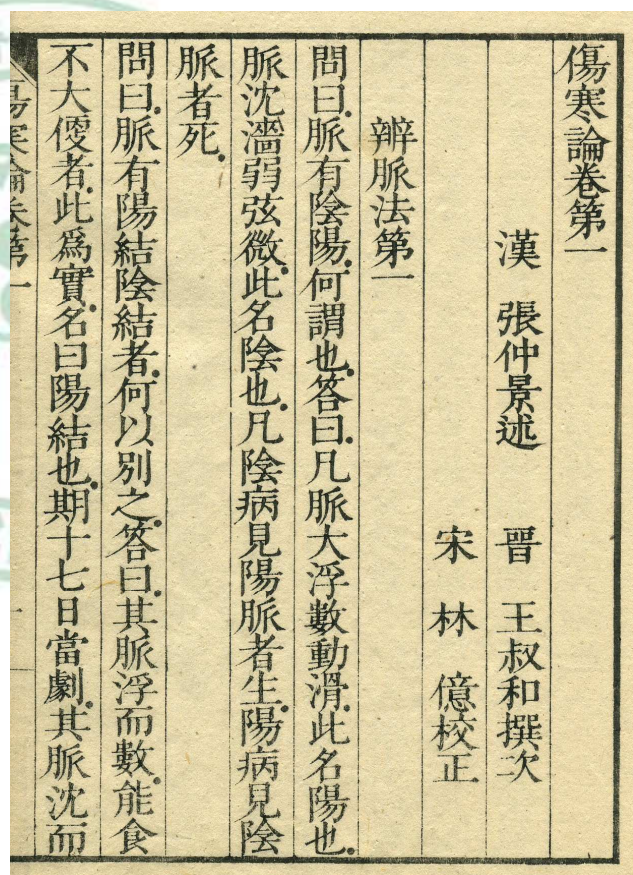 傷寒論卷第一
漢　張仲景述　晉　王叔和撰次
宋　林　億校正
辨脈法第一
問曰.脈有陰陽.何謂也.答曰.凡脈大浮數動滑.此名陽也.
脈沈濇弱弦微.此名陰也.凡陰病見陽脈者生.陽病見陰
脈者死.
問曰.脈有陽結陰結者.何以別之.答曰.其脈浮而數.能食
不大便者.此爲實.名曰陽結也.期十七日當劇.其脈沈而
傷寒論卷第一
一